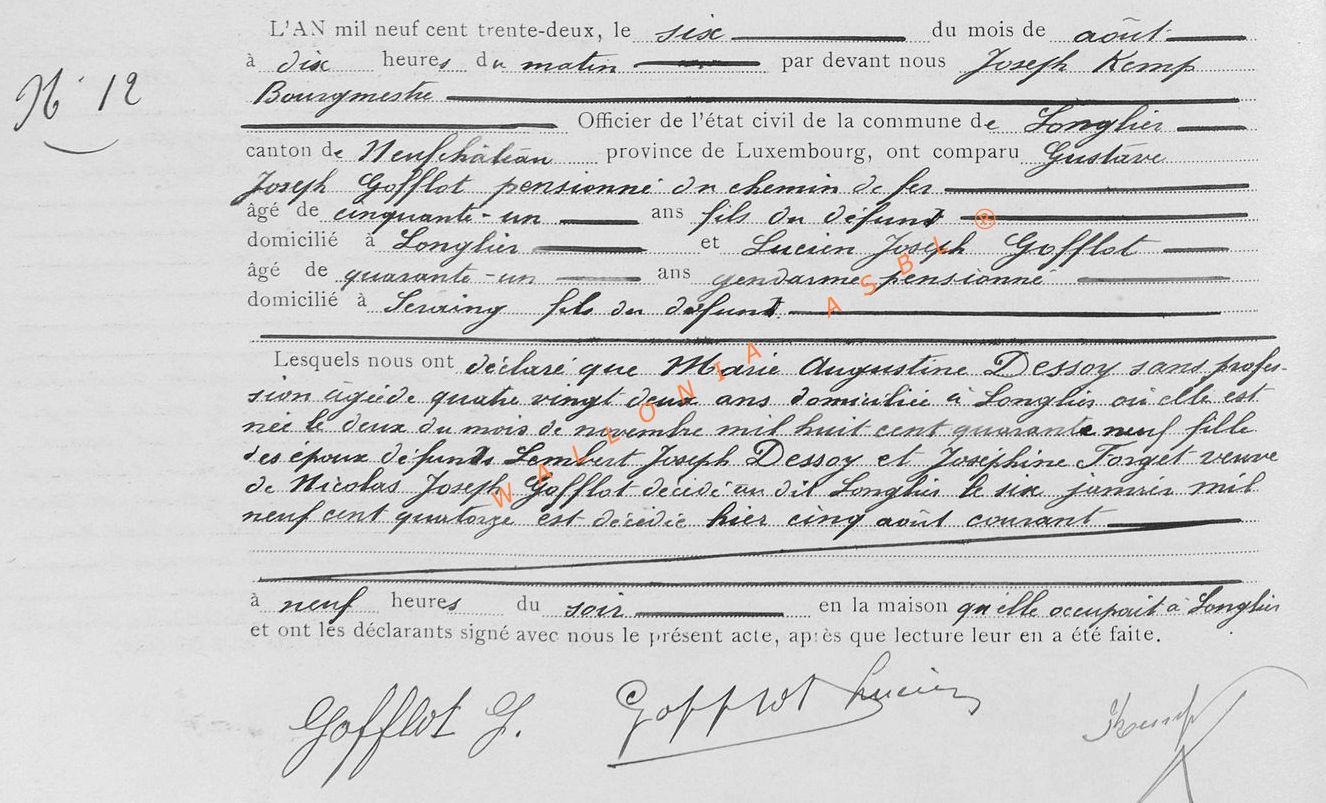 L'AN mil neuf cent trente-deux, le six du mois de août
à dix heures du matin par devant nous Joseph Kemp
N° 12
Bourgmestre
Officier de l'état civil de la commune de Longlier
canton de Neufchâteau province de Luxembourg, ont comparu Gustave
Joseph Gofflot pensionné du chemin de fer
âgé de cinquante-un ans fils du défunt
domicilié à Longlier et Lucien Joseph Gofflot
âgé de quarante-un ans gendarme pensionné
domicilié à Seraing fils du défunt
Lesquels nous ont déclaré que Marie Augustine Dessoy sans profes-
sion âgée de quatre vingt deux ans domiciliée à Longlier où elle est
née le deux du mois de novembre mil huit cent quarante neuf fille
des époux défunts Lambert Joseph Dessoy et Joséphine Forget veuve
de Nicolas Joseph Gofflot décédé au dit Longlier le six janvier mil
neuf cent quatorze est décédée hier cinq août courant
à neuf heures du soir en la maison qu'elle occupait à Longlier
et ont les déclarants signé avec nous le présent acte, après que lecture leur en a été faite.
Gofflot G. Gofflot Lucien Kemp
WALLONIA ASBL ®